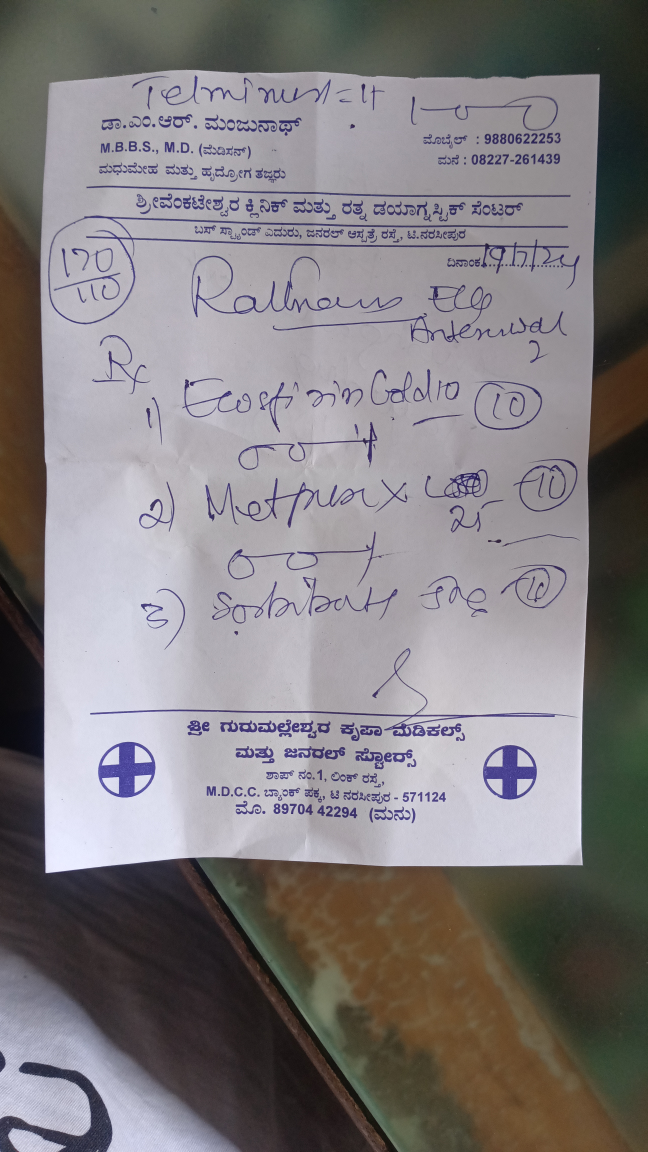 1-0-0
ಡಾ.ಎಂ.ಆರ್. ಮಂಜುನಾಥ್
M.B.B.S., M.D. (ಮೆಡಿಸನ್)
ಮಧುಮೇಹ ಮತ್ತು ಹೃದ್ರೋಗ ತಜ್ಞರು
ಮೊಬೈಲ್ : 9880622253
ಮನೆ : 08227-261439
ಶ್ರೀವೆಂಕಟೇಶ್ವರ ಕ್ಲಿನಿಕ್ ಮತ್ತು ರತ್ನ ಡಯಾಗ್ನಸ್ಟಿಕ್ ಸೆಂಟರ್
ಬಸ್ ಸ್ಟ್ಯಾಂಡ್ ಎದುರು, ಜನರಲ್ ಆಸ್ಪತ್ರೆ ರಸ್ತೆ, ಟಿ.ನರಸೀಪುರ
ದಿನಾಂಕ 19/7/24
170
110
Rx
1) Ecosprin Gold 10 (10)
0-0-1
2) (10)
25
0-0-1
3) (10)
ಶ್ರೀ ಗುರುಮಲ್ಲೇಶ್ವರ ಕೃಪಾ ಮೆಡಿಕಲ್ಸ್
ಮತ್ತು ಜನರಲ್ ಸ್ಟೋರ್ಸ್
ಶಾಪ್ ನಂ.1, ಲಿಂಕ್ ರಸ್ತೆ,
M.D.C.C. ಬ್ಯಾಂಕ್ ಪಕ್ಕ, ಟಿ ನರಸೀಪುರ - 571124
ಮೊ. 89704 42294 (ಮನು)